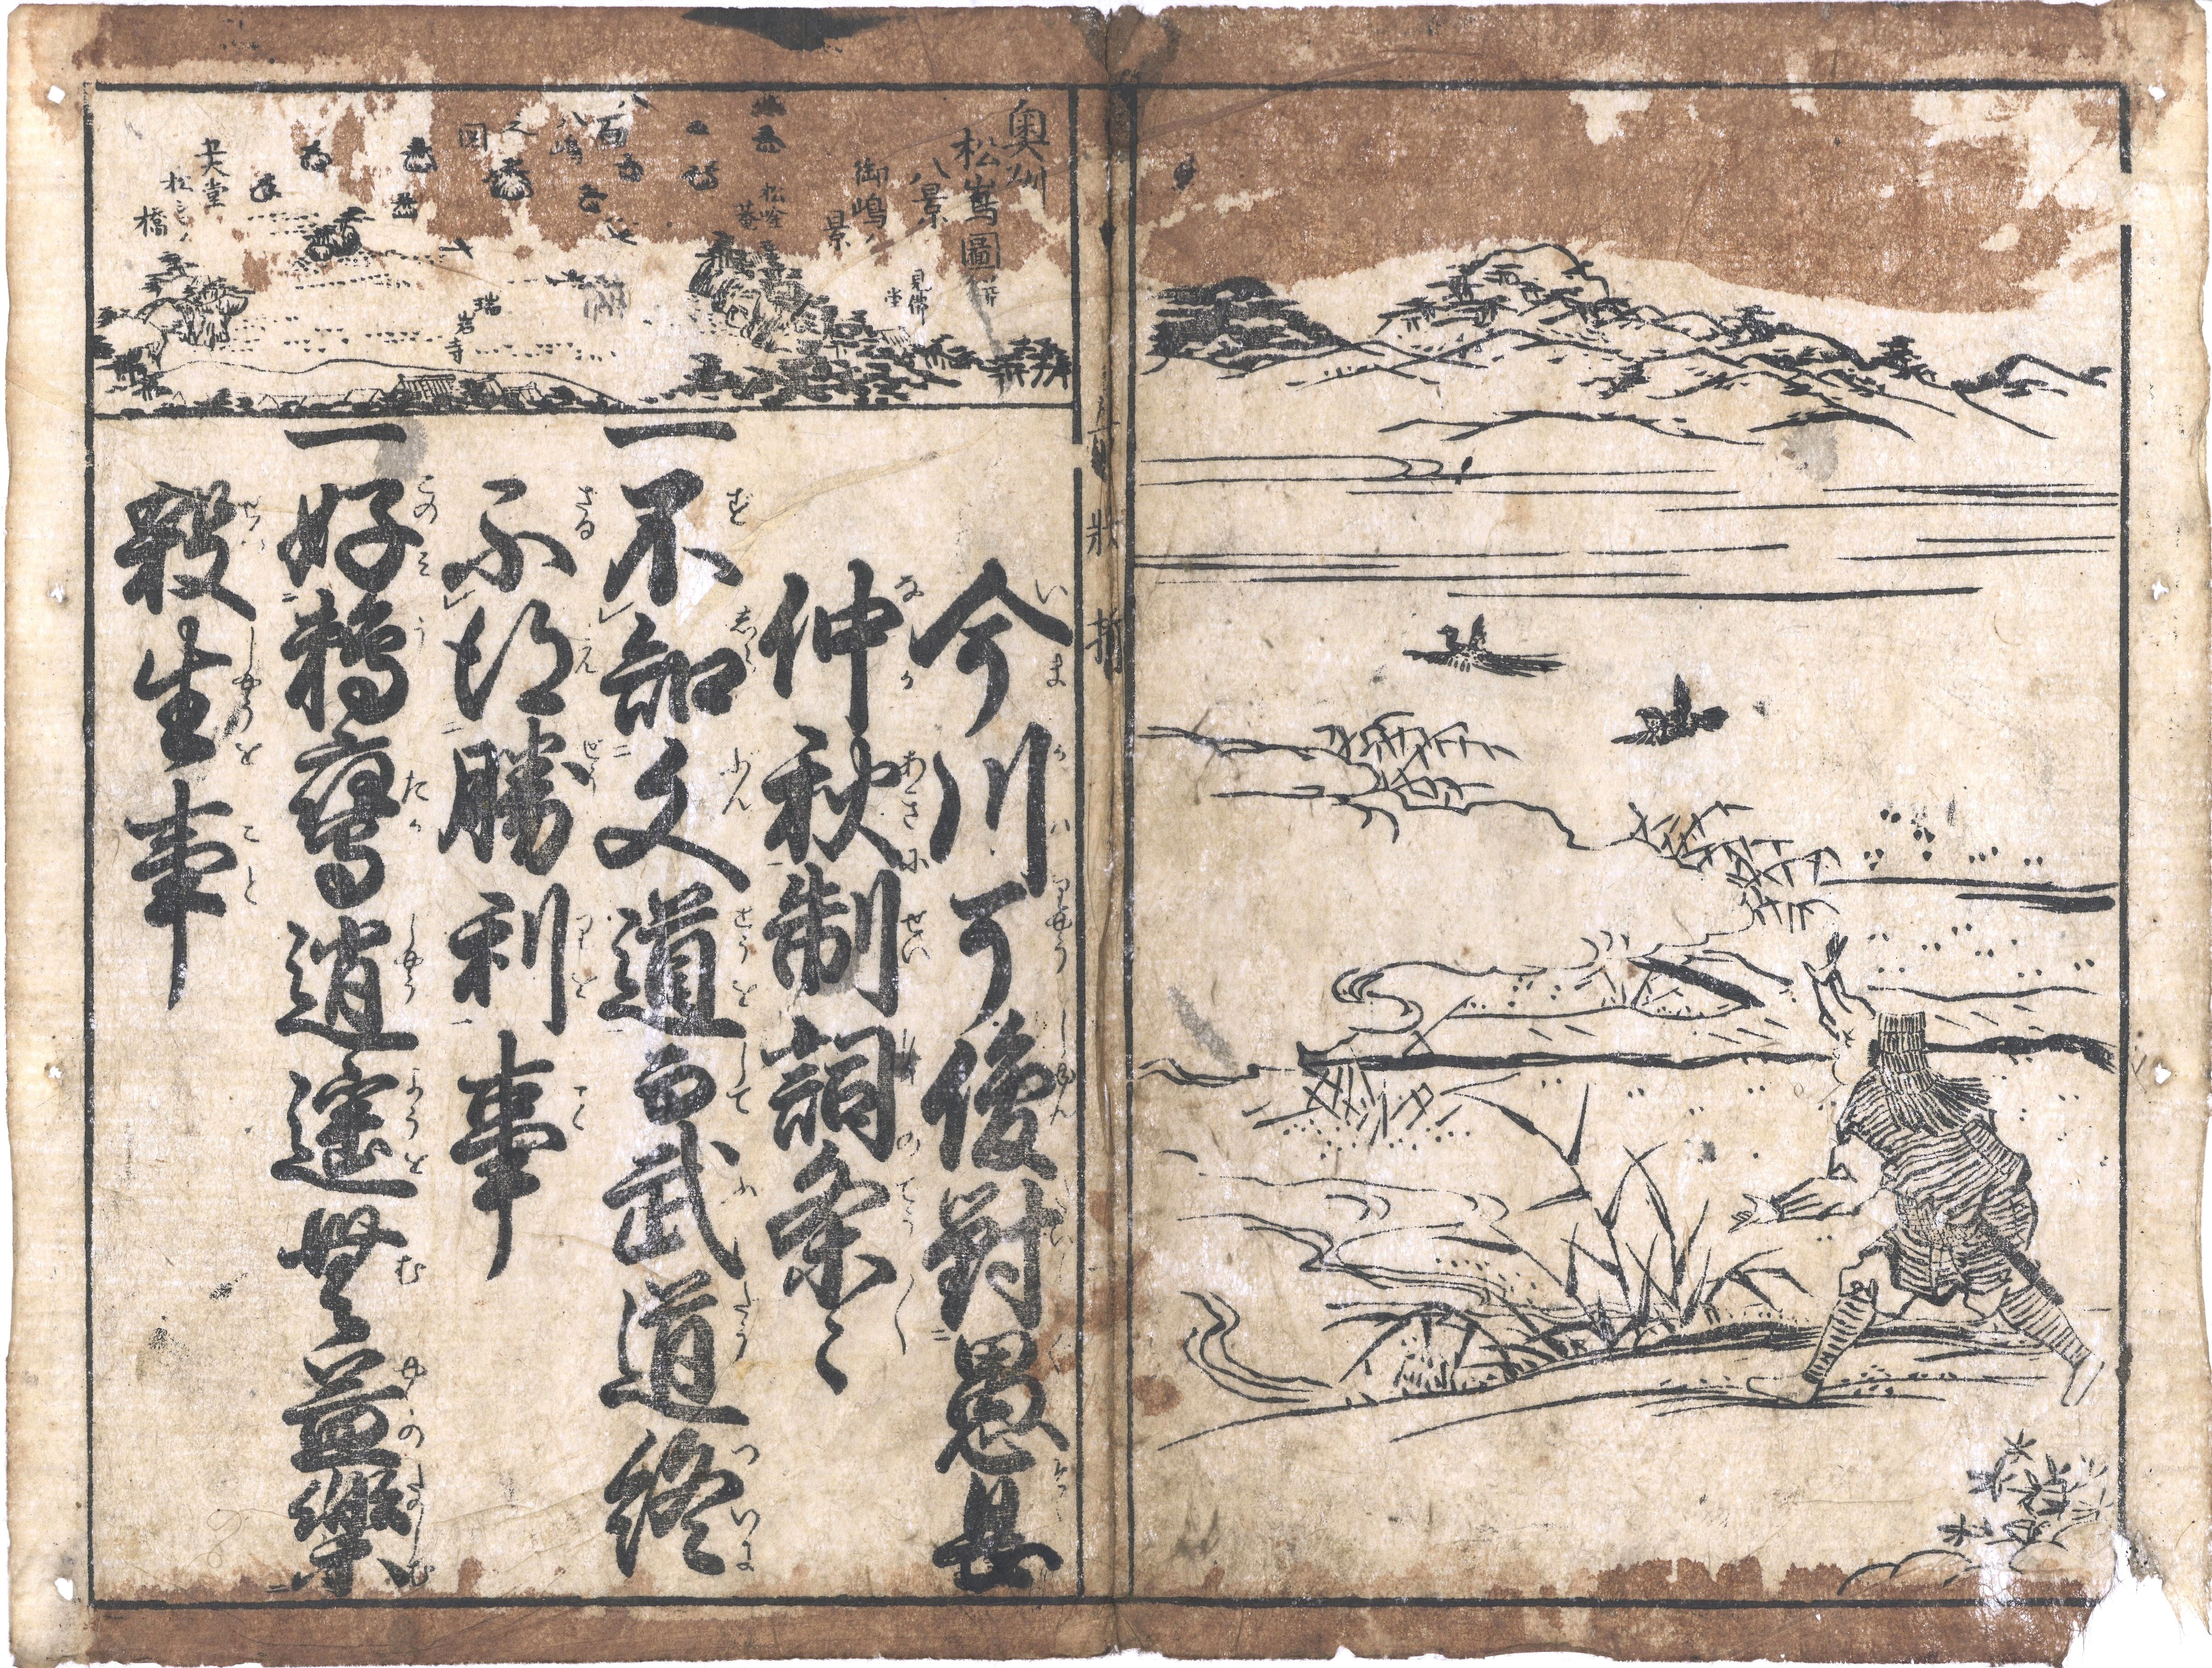 奥州
松嶌圖
八景
御嶋ノ
景
見佛
堂
松吟
菴
八百
八嶋
之
図
瑞
岩
寺
五大堂
橋
今川了俊對愚息
いまがハりやうしゆんたいしぐそく
仲秋制詞条〻
なかあきにせいしのでう〳〵
一不知文道而武道終
ずしらぶんだうをしてぶだうついに
不得勝利事
ざるえせうりをこと
一好鵜鷹逍遙無益樂
このミうたかしやうようをむやくのたのしむ
殺生事
せつしやうをこと